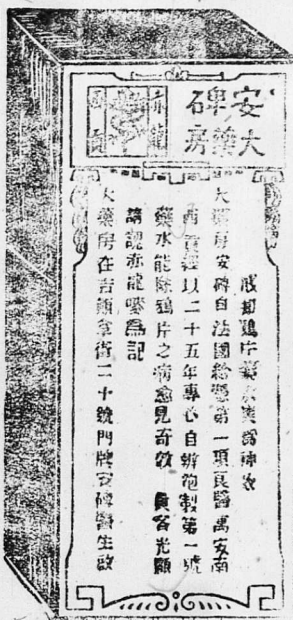 安碑
大藥房
赤龍
戒鴉片藥水
大藥房安碑自法國給憑第一項良醫寓安南
西貢經以二十五年專心自辦泡制第一號
藥水能除鴉片之病愈見奇效 貴客光顧
請認赤龍嘜爲記
大藥房在吉拿街二十號門牌安碑醫生啟